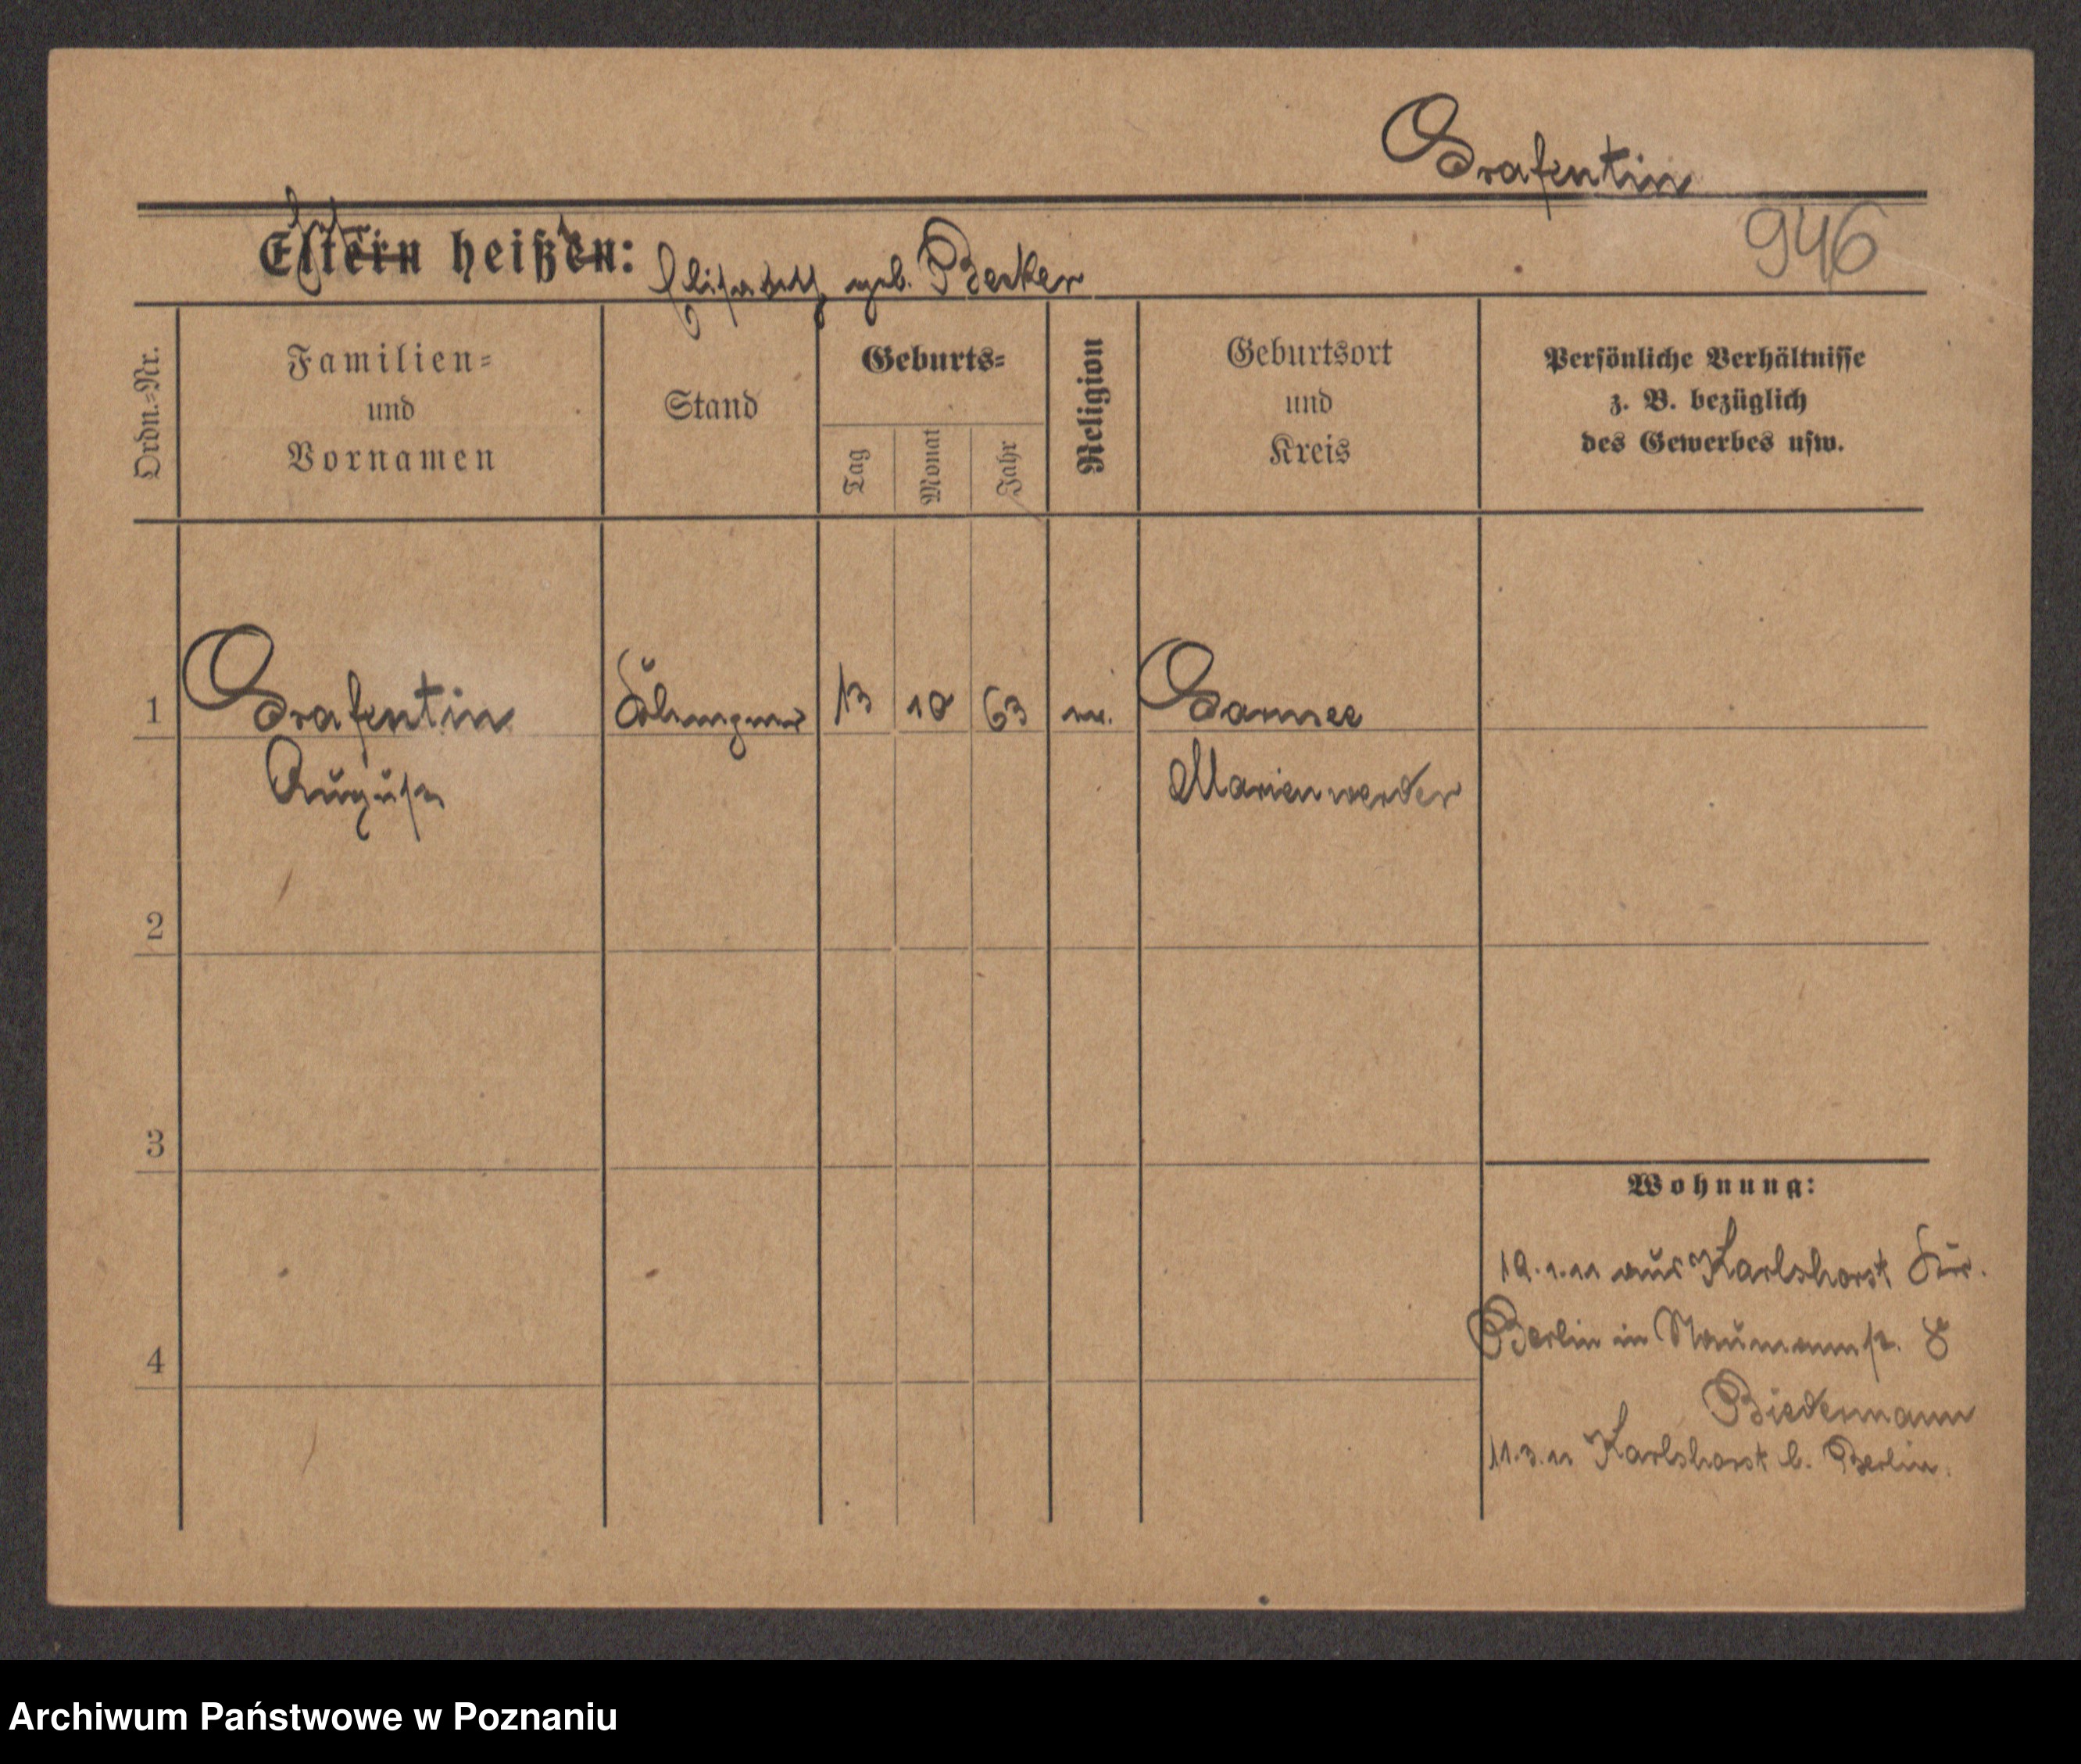 Grafentin
946
Eltern heißen: Elisabeth geb. Becker
Ordn.-Nr.
Familien-
und
Vornamen
Stand
Geburts-
Tag
Monat
Jahr
Religion
Geburtsort
und
Kreis
Persönliche Verhältnisse
z. B. bezüglich
des Gewerbes usw.
1
Grafentin
August
13
10
63
Marienwerder
2
3
4
Wohnung:
19.1.11 aus Karlshorst
Berlin in Naumannstr. 8
Biedermann
11.3.11 Karlshorst b. Berlin.
Archiwum Państwowe w Poznaniu